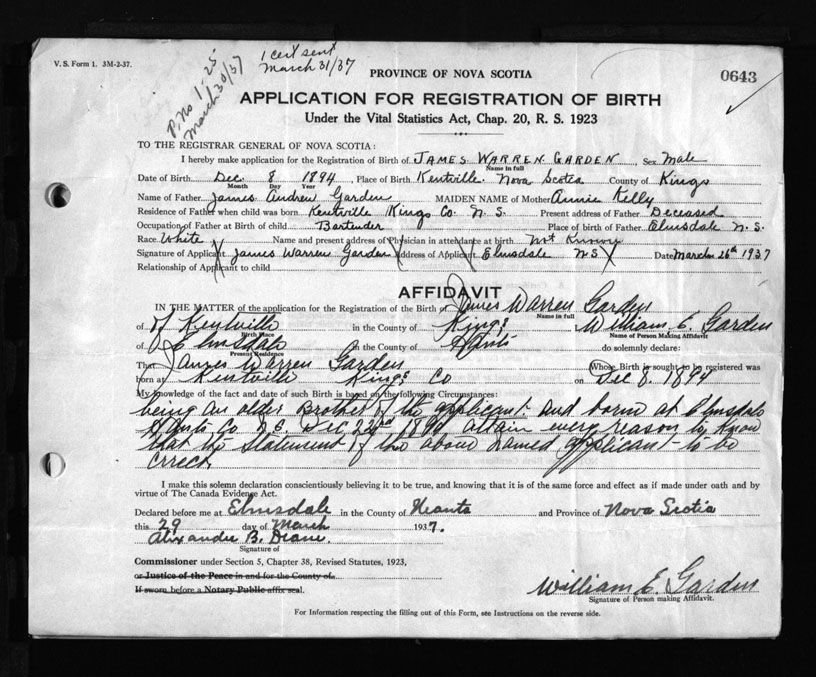 V. S. Form 1. 3M-2-37.
P. No 1.25
March 30/37
1 cert sent
March 31/37
0643
PROVINCE OF NOVA SCOTIA
APPLICATION FOR REGISTRATION OF BIRTH
Under the Vital Statistics Act, Chap. 20, R. S. 1923
TO THE REGISTRAR GENERAL OF NOVA SCOTIA:
I hereby make application for the Registration of Birth of JAMES WARREN GARDEN Sex Male
Name in full
Date of Birth Dec. 8 1894 Place of Birth Kentville Nova Scotia County of Kings
Month Day Year
Name of Father James Andrew Garden MAIDEN NAME of Mother Annie Kelly
Residence of Father when child was born Kentville Kings Co. N. S. Present address of Father Deceased
Occupation of Father at Birth of child Bartender Place of birth of Father Elmsdale N. S.
Race White Name and present address of Physician in attendance at birth
Signature of Applicant James Warren Garden Address of Applicant Elmsdale NS Date March 26th 1937
Relationship of Applicant to child
AFFIDAVIT
IN THE MATTER of the application for the Registration of the Birth of James Warren Garden
Name in full
of Kentville in the County of Kings William E. Garden
Birth Place Name of Person Making Affidavit
of Elmsdale in the County of Hants do solemnly declare:
Present Residence
That James Warren Garden Whose Birth is sought to be registered was
born at Kentville Kings Co on Dec 8. 1894
My knowledge of the fact and date of such Birth is based on the following Circumstances:
being an older Brother of the applicant and born at Elmsdale
Hants Co. N.S. Dec 1890 every reason to know
that the Statement of the above named applicant to be
I make this solemn declaration conscientiously believing it to be true, and knowing that it is of the same force and effect as if made under oath and by
virtue of The Canada Evidence Act.
Declared before me at Elmsdale in the County of Heants and Province of Nova Scotia
this 29 day of March 1937.
Alexander B. Deane.
Signature of
Commissioner under Section 5, Chapter 38, Revised Statutes, 1923,
or Justice of the Peace in and for the County of
If sworn before a Notary Public affix seal.
William E. Garden
Signature of Person making Affidavit.
For Information respecting the filling out of this Form, see Instructions on the reverse side.